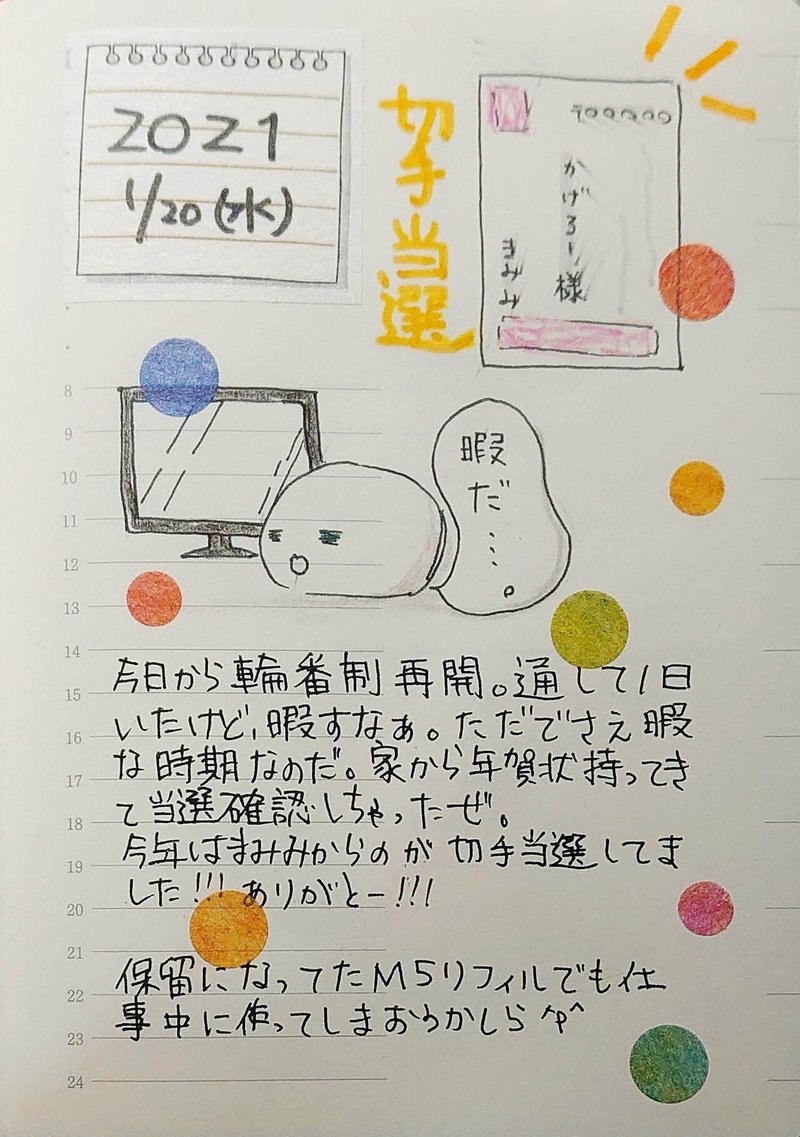 2021
1/20(水)
切手当選
〒○○○○○○
かげろー様
まみみ
暇だ…。
8
9
10
11
12
13
14
15
16
17
18
19
20
21
22
23
24
今日から輪番制再開。通して1日
いたけど、暇すなぁ。ただでさえ暇
な時期なのだ。家から年賀状持ってき
て当選確認しちゃったぜ。
今年はまみみからのが切手当選してま
した!!!ありがとー!!!
保留になってたM5リフィルでも仕
事中に使ってしまおうかしら^p^